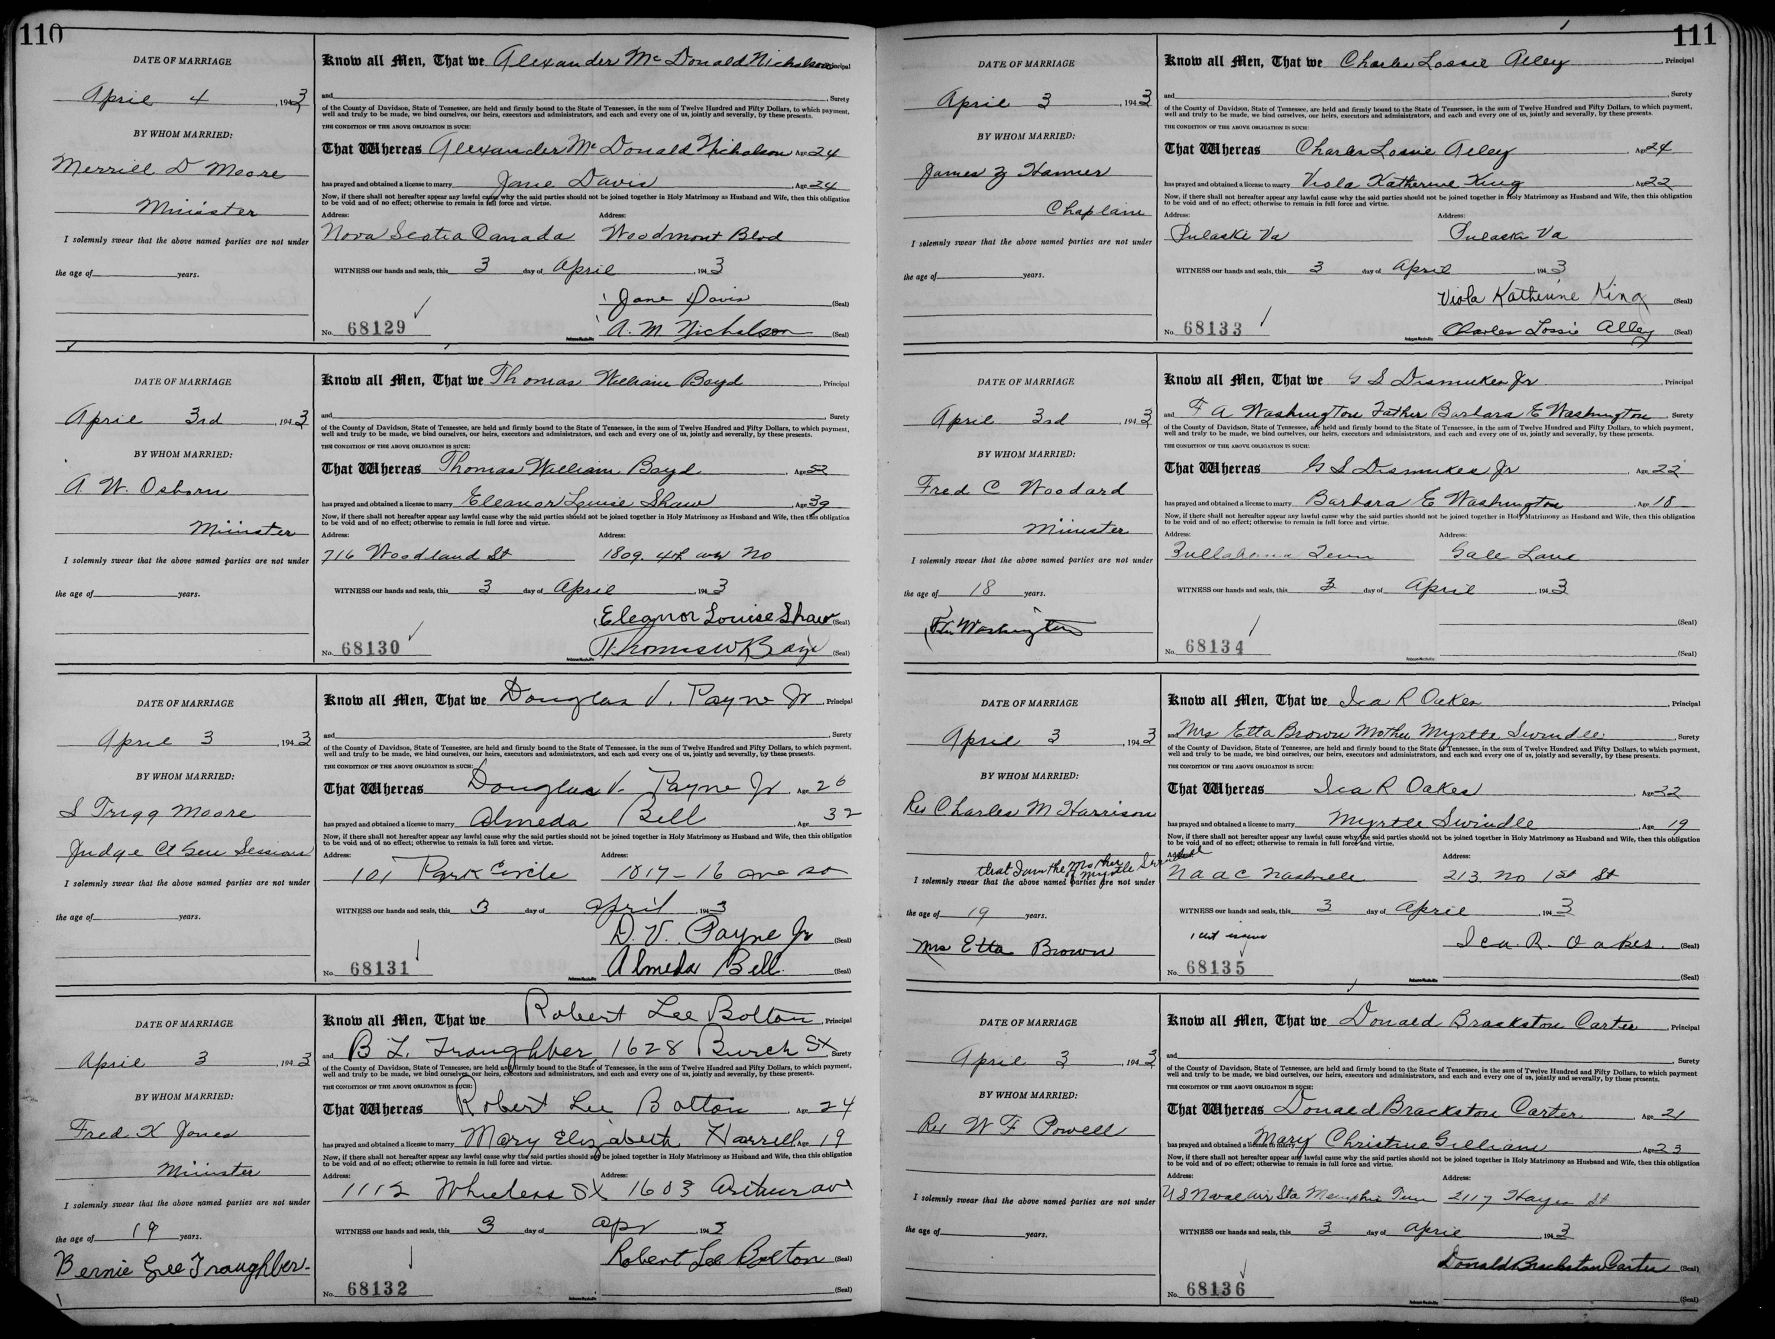 110
DATE OF MARRIAGE
April 4, 1943
BY WHOM MARRIED:
Merrill D Moore
Minister
I solemnly swear that the above named parties are not under
the age of years.
Know all Men, That we Alexander Mc Donald Nicholson Principal
and , Surety
of the County of Davidson, State of Tennessee, are held and firmly bound to the State of Tennessee, in the sum of Twelve Hundred and Fifty Dollars, to which payment,
well and truly to be made, we bind ourselves, our heirs, executors and administrators, and each and every one of us, jointly and severally, by these presents.
THE CONDITION OF THE ABOVE OBLIGATION IS SUCH:
That Whereas Alexander Mc Donald Nicholson Age 24
has prayed and obtained a license to marry Jane Davis , Age 24
Now, if there shall not hereafter appear any lawful cause why the said parties should not be joined together in Holy Matrimony as Husband and Wife, then this obligation
to be void and of no effect; otherwise to remain in full force and virtue.
Address: Address:
Nova Scotia Canada Woodmont Blvd
WITNESS our hands and seals, this 3 day of April , 1943
Jane Davis (Seal)
No. 68129 A. M. Nicholson (Seal)
DATE OF MARRIAGE
April 3rd , 1943
BY WHOM MARRIED:
A W. Osborn
Minister
I solemnly swear that the above named parties are not under
the age of years.
Know all Men, That we Thomas William Boyd , Principal
and , Surety
of the County of Davidson, State of Tennessee, are held and firmly bound to the State of Tennessee, in the sum of Twelve Hundred and Fifty Dollars, to which payment,
well and truly to be made, we bind ourselves, our heirs, executors and administrators, and each and every one of us, jointly and severally, by these presents.
THE CONDITION OF THE ABOVE OBLIGATION IS SUCH:
That Whereas Thomas William Boyd , Age 52
has prayed and obtained a license to marry Eleanor Louise Shaw , Age 39
Now, if there shall not hereafter appear any lawful cause why the said parties should not be joined together in Holy Matrimony as Husband and Wife, then this obligation
to be void and of no effect; otherwise to remain in full force and virtue.
Address: Address:
716 Woodland St 1809. 4th ave No
WITNESS our hands and seals, this 3 day of April , 1943
Eleanor Louise Shaw (Seal)
No. 68130 Thomas W Boyd (Seal)
DATE OF MARRIAGE
April 3 , 1943
BY WHOM MARRIED:
S Trigg Moore
Judge Ct Gen Sessions
I solemnly swear that the above named parties are not under
the age of years.
Know all Men, That we Douglas V. Payne Jr , Principal
and , Surety
of the County of Davidson, State of Tennessee, are held and firmly bound to the State of Tennessee, in the sum of Twelve Hundred and Fifty Dollars, to which payment,
well and truly to be made, we bind ourselves, our heirs, executors and administrators, and each and every one of us, jointly and severally, by these presents.
THE CONDITION OF THE ABOVE OBLIGATION IS SUCH:
That Whereas Douglas V. Payne Jr , Age 26
has prayed and obtained a license to marry Almeda Bell , Age 32
Now, if there shall not hereafter appear any lawful cause why the said parties should not be joined together in Holy Matrimony as Husband and Wife, then this obligation
to be void and of no effect; otherwise to remain in full force and virtue.
Address: Address:
101 Park Circle 1017 - 16 ave so
WITNESS our hands and seals, this 3 day of april , 1943
D. V. Payne Jr (Seal)
No. 68131 Almeda Bell (Seal)
DATE OF MARRIAGE
April 3 , 1943
BY WHOM MARRIED:
Fred K Jones
Minister
I solemnly swear that the above named parties are not under
the age of 19 years.
Bernie Lee Traughber
Know all Men, That we Robert Lee Bolton , Principal
and B L. Traughber, 1628 Burch St Surety
of the County of Davidson, State of Tennessee, are held and firmly bound to the State of Tennessee, in the sum of Twelve Hundred and Fifty Dollars, to which payment,
well and truly to be made, we bind ourselves, our heirs, executors and administrators, and each and every one of us, jointly and severally, by these presents.
THE CONDITION OF THE ABOVE OBLIGATION IS SUCH:
That Whereas Robert Lee Bolton , Age 24
has prayed and obtained a license to marry Mary Elizabeth Harrell Age 19
Now, if there shall not hereafter appear any lawful cause why the said parties should not be joined together in Holy Matrimony as Husband and Wife, then this obligation
to be void and of no effect; otherwise to remain in full force and virtue.
Address: Address:
1112 Wheless St 1603 Arthur ave
WITNESS our hands and seals, this 3 day of apr 1943
Robert Lee Bolton (Seal)
No. 68132 (Seal)
111
DATE OF MARRIAGE
April 3 , 1943
BY WHOM MARRIED:
James Z Hanner
Chaplain
I solemnly swear that the above named parties are not under
the age of years.
Know all Men, That we Charles Lossie Alley , Principal
and , Surety
of the County of Davidson, State of Tennessee, are held and firmly bound to the State of Tennessee, in the sum of Twelve Hundred and Fifty Dollars, to which payment,
well and truly to be made, we bind ourselves, our heirs, executors and administrators, and each and every one of us, jointly and severally, by these presents.
THE CONDITION OF THE ABOVE OBLIGATION IS SUCH:
That Whereas Charles Lossie Alley , Age 24
has prayed and obtained a license to marry Viola Katherine King Age 22
Now, if there shall not hereafter appear any lawful cause why the said parties should not be joined together in Holy Matrimony as Husband and Wife, then this obligation
to be void and of no effect; otherwise to remain in full force and virtue.
Address: Address:
Pulaski Va Pulaski Va
WITNESS our hands and seals, this 3 day of April , 1943
Viola Katherine King (Seal)
No. 68133 Charles Lossie Alley (Seal)
DATE OF MARRIAGE
April 3rd , 1943
BY WHOM MARRIED:
Fred C Woodard
Minister
I solemnly swear that the above named parties are not under
the age of 18 years.
Washington
Know all Men, That we G S Dismukes Jr , Principal
and F A Washington Father Barbara E Washington , Surety
of the County of Davidson, State of Tennessee, are held and firmly bound to the State of Tennessee, in the sum of Twelve Hundred and Fifty Dollars, to which payment,
well and truly to be made, we bind ourselves, our heirs, executors and administrators, and each and every one of us, jointly and severally, by these presents.
THE CONDITION OF THE ABOVE OBLIGATION IS SUCH:
That Whereas G S Dismukes Jr , Age 22
has prayed and obtained a license to marry Barbara E Washington , Age 18
Now, if there shall not hereafter appear any lawful cause why the said parties should not be joined together in Holy Matrimony as Husband and Wife, then this obligation
to be void and of no effect; otherwise to remain in full force and virtue.
Address: Address:
Tullahoma Tenn Gale Lane
WITNESS our hands and seals, this 3 day of April , 1943
(Seal)
No. 68134 (Seal)
DATE OF MARRIAGE
April 3 , 1943
BY WHOM MARRIED:
Rev Charles M Harrison
that I am the Mother of Myrtle Swindle
I solemnly swear that the above named parties are not under
the age of 19 years.
Mrs Etta Brown
Know all Men, That we Ica R Oakes , Principal
and Mrs Etta Brown Mother Myrtle Swindle , Surety
of the County of Davidson, State of Tennessee, are held and firmly bound to the State of Tennessee, in the sum of Twelve Hundred and Fifty Dollars, to which payment,
well and truly to be made, we bind ourselves, our heirs, executors and administrators, and each and every one of us, jointly and severally, by these presents.
THE CONDITION OF THE ABOVE OBLIGATION IS SUCH:
That Whereas Ica R Oakes , Age 22
has prayed and obtained a license to marry Myrtle Swindle , Age 19
Now, if there shall not hereafter appear any lawful cause why the said parties should not be joined together in Holy Matrimony as Husband and Wife, then this obligation
to be void and of no effect; otherwise to remain in full force and virtue.
Address: Address:
N A A C Nashville 213 No 1st St
WITNESS our hands and seals, this 3 day of April , 1943
Ica. R. Oakes. (Seal)
No. 68135 (Seal)
DATE OF MARRIAGE
April 3 , 1943
BY WHOM MARRIED:
Rev W F Powell
I solemnly swear that the above named parties are not under
the age of years.
Know all Men, That we Donald Brackston Carter , Principal
and , Surety
of the County of Davidson, State of Tennessee, are held and firmly bound to the State of Tennessee, in the sum of Twelve Hundred and Fifty Dollars, to which payment,
well and truly to be made, we bind ourselves, our heirs, executors and administrators, and each and every one of us, jointly and severally, by these presents.
THE CONDITION OF THE ABOVE OBLIGATION IS SUCH:
That Whereas Donald Brackston Carter Age 21
has prayed and obtained a license to marry Mary Christine Gilliam , Age 23
Now, if there shall not hereafter appear any lawful cause why the said parties should not be joined together in Holy Matrimony as Husband and Wife, then this obligation
to be void and of no effect; otherwise to remain in full force and virtue.
Address: Address:
U S Naval Air Sta Memphis Tenn 2117 Hayes St
WITNESS our hands and seals, this 3 day of April , 1943
Donald Brackston Carter (Seal)
No. 68136 (Seal)